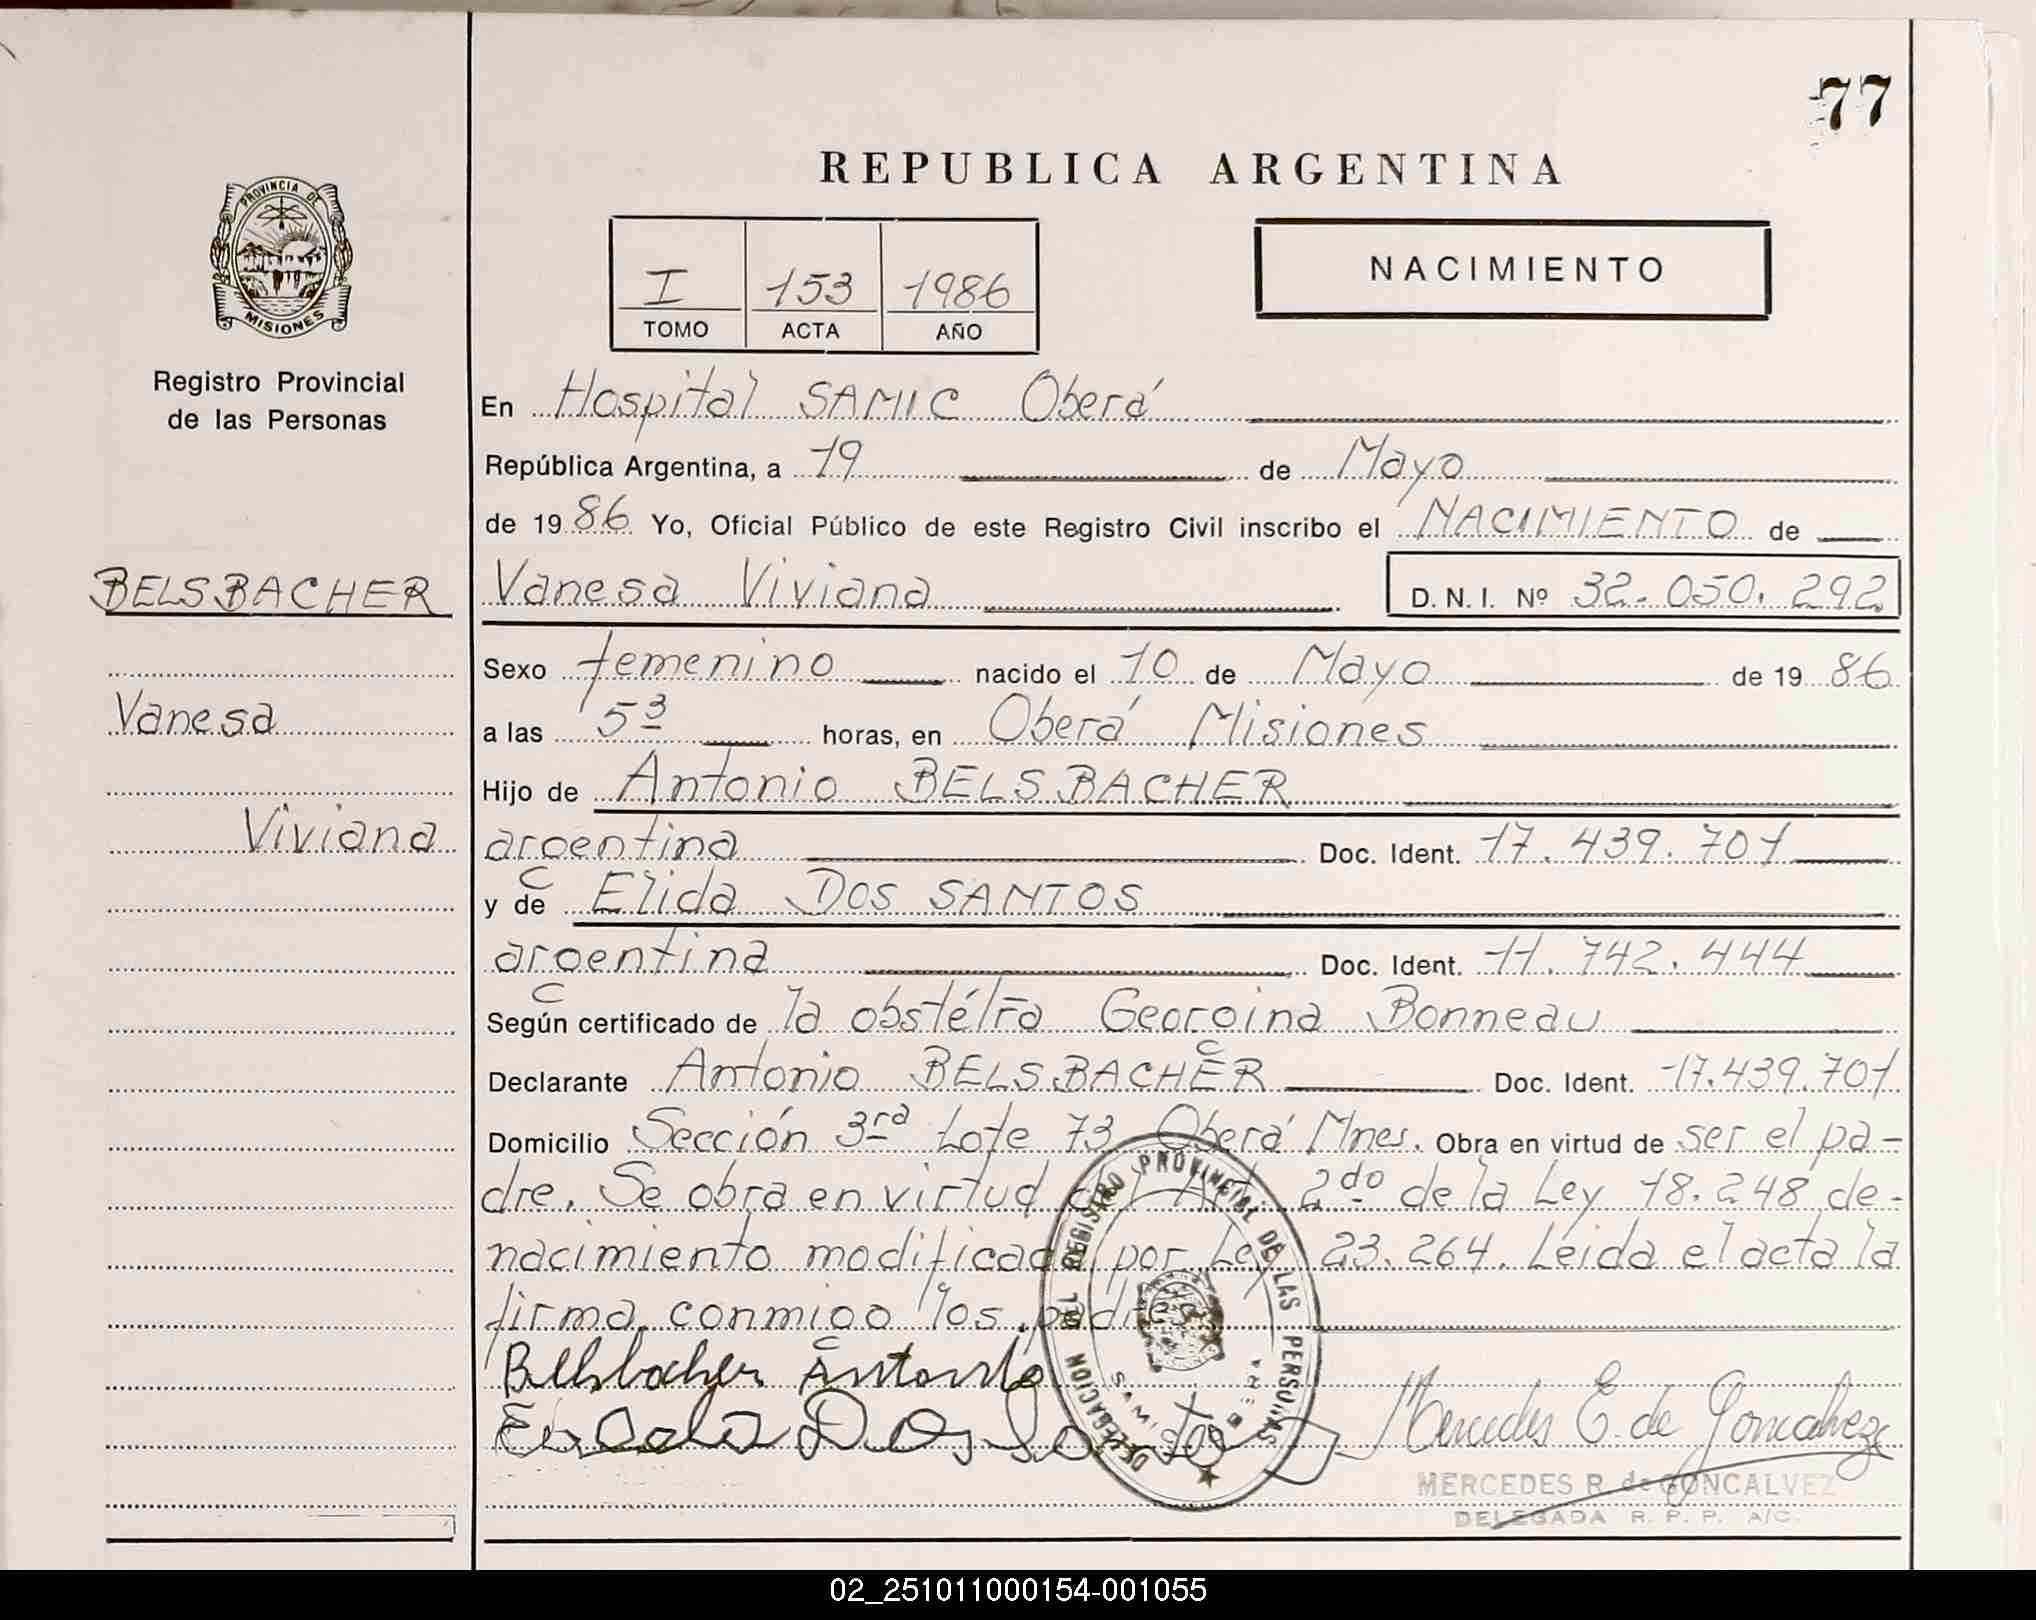 77
REPUBLICA ARGENTINA
PROVINCIA DE
MISIONES
I 153 1986
TOMO ACTA AÑO
NACIMIENTO
Registro Provincial
de las Personas
En Hospital SAMIC Oberá
República Argentina, a 19 de Mayo
de 1986 Yo, Oficial Público de este Registro Civil inscribo el NACIMIENTO de
BELSBACHER
Vanesa Viviana D. N. I. Nº 32.050.292
Sexo femenino nacido el 10 de Mayo de 1986
Vanesa
a las 5 3 horas, en Oberá Misiones
Hijo de Antonio BELSBACHER
Viviana
argentina Doc. Ident. 17.439.701
y de Elida DOS SANTOS
argentina Doc. Ident. 11.742.444
Según certificado de la obstétra Georgina Bonneau
Declarante Antonio BELSBACHER Doc. Ident. 17.439.701
Domicilio Sección 3ra Lote 73 Oberá Mnes. Obra en virtud de ser el pa-
dre. Se obra en virtud del Art. 2do de la Ley 18.248 de-
nacimiento modificada por Ley 23.264. Leida el acta la
firma conmigo los padres
DELEGACION DEL REGISTRO PROVINCIAL DE LAS PERSONAS
Belsbacher Antonio
Dos Santos
Mercedes E. de Goncalvez
MERCEDES R. de GONCALVEZ
DELEGADA R. P. P. A/C.
02_251011000154-001055